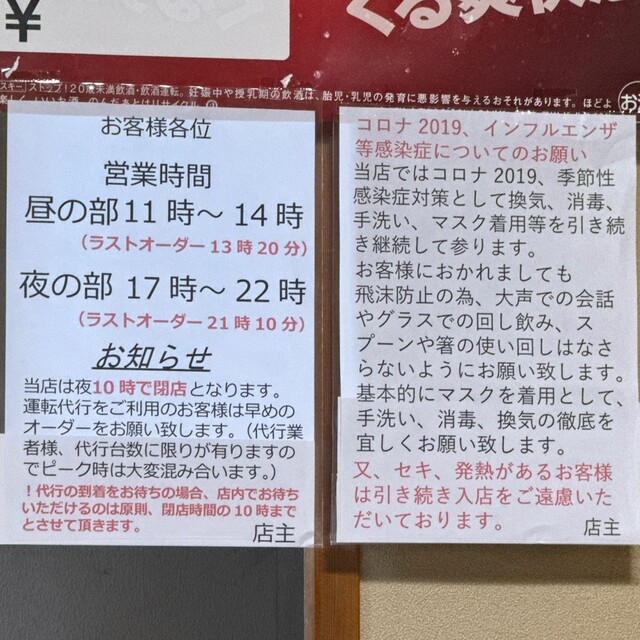 ¥
くる爽快
スキー｜ストップ！20歳未満飲酒・飲酒運転。妊娠中や授乳期の飲酒は、胎児・乳児の発育に悪影響を与えるおそれがあります。ほどよ
お客様各位
営業時間
昼の部 11 時～ 14 時
（ラストオーダー 13 時 20 分）
夜の部 17 時～ 22 時
（ラストオーダー 21 時 10 分）
お知らせ
当店は夜10時で閉店となります。
運転代行をご利用のお客様は早めの
オーダーをお願い致します。（代行業
者様、代行台数に限りが有りますの
でピーク時は大変混み合います。）
！代行の到着をお待ちの場合、店内でお待ち
いただけるのは原則、閉店時間の 10 時まで
とさせて頂きます。
店主
コロナ 2019、インフルエンザ
等感染症についてのお願い
当店ではコロナ 2019、季節性
感染症対策として換気、消毒、
手洗い、マスク着用等を引き続
き継続して参ります。
お客様におかれましても
飛沫防止の為、大声での会話
やグラスでの回し飲み、ス
プーンや箸の使い回しはなさ
らないようにお願い致します。
基本的にマスクを着用として、
手洗い、消毒、換気の徹底を
宜しくお願い致します。
又、セキ、発熱があるお客様
は引き続き入店をご遠慮いた
だいております。
店主